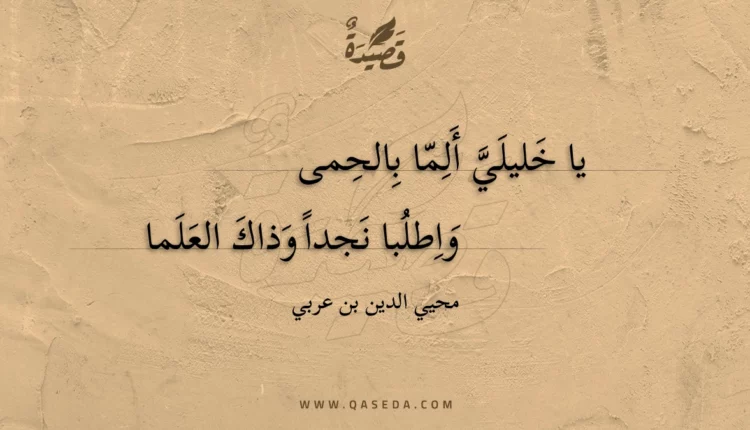 قَصيدَةٌ
يا خَليلَيَّ أَلِمّا بِالحِمى
وَاِطلُبا نَجداً وَذاكَ العَلَما
محيي الدين بن عربي
WWW.QASEDA.COM